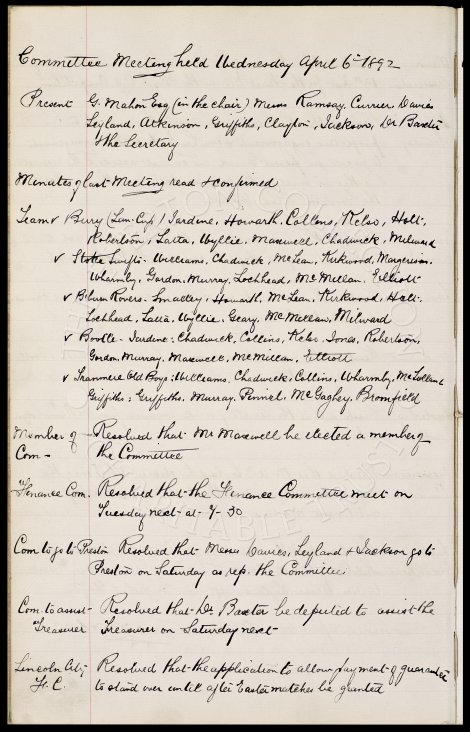 Committee Meeting held Wednesday April 6th 1892
Present G. Mahon Esq (in the chair) Messrs Ramsay, Currier, Davies
Leyland, Atkinson, Griffiths, Clayton, Jackson, Dr Baxter
& the Secretary
Minutes of last Meeting read & confirmed
Team v Bury (Lan. Cup) Jardine, Howarth, Collins, Kelso, Holt.
Robertson, Latta, Wyllie, Maxwell, Chadwick, Milward
v Stoke Swifts. Williams, Chadwick, McLean, Kirkwood, Margerison.
Wharmby, Gordon, Murray, Lochhead, McMillan. Elliott
v B'burn Rovers. Smalley, Howarth, McLean, Kirkwood, Holt.
Lochhead, Latta, Wyllie. Geary. McMillan, Milward
v Bootle. Jardine. Chadwick, Collins, Kelso. Jones, Robertson,
Gordon, Murray, Maxwell. McMillan, Elliott
v Tranmere Old Boys; Williams, Chadwick, Collins, Wharmby, McLellan &
Griffiths; Griffiths, Murray. Pinnel. McGaghey. Bromfield
Member of Resolved that Mr Maxwell be elected a member of
Com- the Committee
Finance Com. Resolved that the Finance Committee meet on
Tuesday next at 7-30
Com to go to Preston Resolved that Messrs Davies, Leyland & Jackson go to
Preston on Saturday as rep. the Committee.
Com. to assist Resolved that Dr Baxter be deputed to assist the
Treasurer Treasurer on Saturday next
Lincoln City Resolved that the application to allow payment of guarantee
F. C. to stand over until after Easter matches be granted